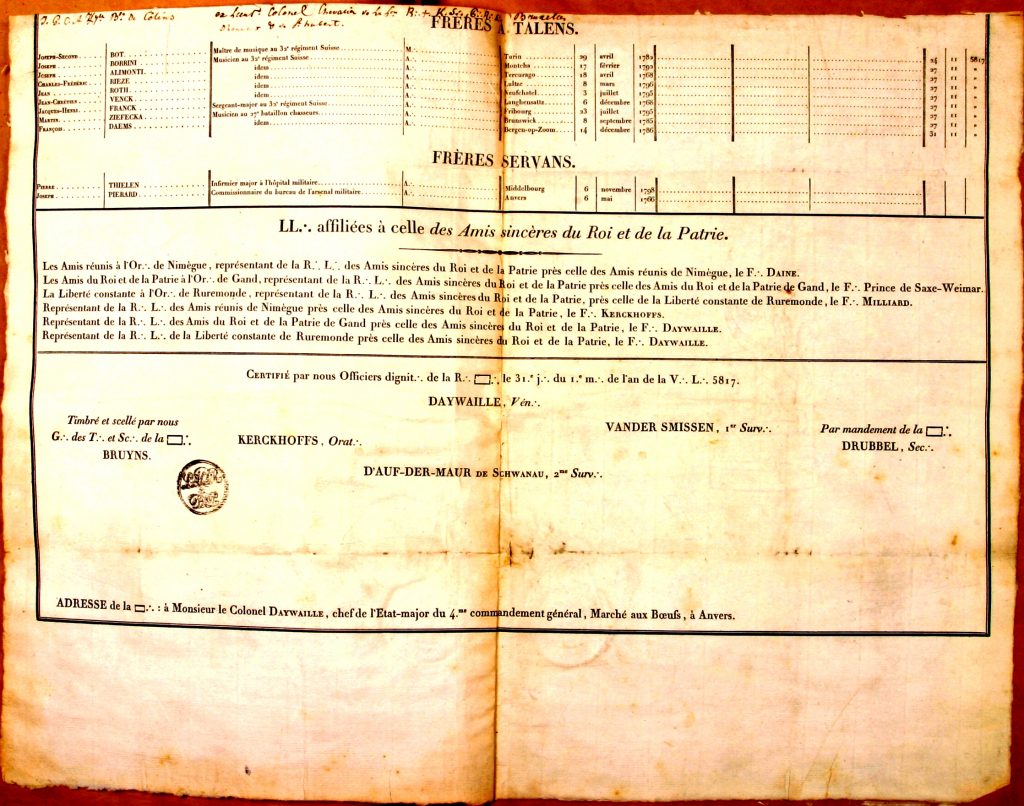 J. G. C. A. Hyte Bn de Colins ex Lieut Colonel Chevalier de Bruxelles
FRÈRES A TALENS.
JOSEPH-SECOND BOT. Maître de musique au 32e régiment Suisse M. Turin 29 avril 1782 24 11 5817
JOSEPH BORRINI Musicien au 32e régiment Suisse A. Montcha 17 février 1790 27 11 »
JOSEPH ALIMONTI. idem A. Tercurago 18 avril 1768 27 11 »
CHARLES-FRÉDÉRIC RIEZE idem A. Lultze 8 mars 1796 27 11 »
JEAN ROTH idem A. Neufchatel 3 juillet 1795 27 11 »
JEAN-CHRÉTIEN VENCK idem A. Langhensatz 6 décembre 1768 27 11 »
JACQUES-HENRI FRANCK Sergeant-major au 32e régiment Suisse A. Fribourg 23 juillet 1795 27 11 »
MARTIN ZIEFECKA Musicien au 27e bataillon chasseurs A. Brunswick 8 septembre 1785 27 11 »
FRANÇOIS DAEMS idem A. Bergen-op-Zoom 14 décembre 1786 31 11 »
FRÈRES SERVANS.
PIERRE THIELEN Infirmier major à l'hôpital militaire A. Middelbourg 6 novembre 1798
JOSEPH PIERARD Commissionnaire du bureau de l'arsenal militaire A. Anvers 6 mai 1766
LL∴ affiliées à celle des Amis sincères du Roi et de la Patrie.
Les Amis réunis à l'Or∴ de Nimègue, représentant de la R∴ L∴ des Amis sincères du Roi et de la Patrie près celle des Amis réunis de Nimègue, le F∴ DAINE.
Les Amis du Roi et de la Patrie à l'Or∴ de Gand, représentant de la R∴ L∴ des Amis sincères du Roi et de la Patrie près celle des Amis du Roi et de la Patrie de Gand, le F∴ Prince de Saxe-Weimar.
La Liberté constante à l'Or∴ de Ruremonde, représentant de la R∴ L∴ des Amis sincères du Roi et de la Patrie, près celle de la Liberté constante de Ruremonde, le F∴ MILLIARD.
Représentant de la R∴ L∴ des Amis réunis de Nimègue près celle des Amis sincères du Roi et de la Patrie, le F∴ KERCKHOFFS.
Représentant de la R∴ L∴ des Amis du Roi et de la Patrie de Gand près celle des Amis sincères du Roi et de la Patrie, le F∴ DAYWAILLE.
Représentant de la R∴ L∴ de la Liberté constante de Ruremonde près celle des Amis sincères du Roi et de la Patrie, le F∴ DAYWAILLE.
CERTIFIÉ par nous Officiers dignit∴ de la R∴ ▭∴ le 31.e j∴ du 1.e m∴ de l'an de la V∴ L∴ 5817.
DAYWAILLE, Vén∴
Timbré et scellé par nous
G∴ des T∴ et Sc∴ de la ▭∴
BRUYNS.
KERCKHOFFS, Orat∴
VANDER SMISSEN, 1er Surv∴
Par mandement de la ▭∴
DRUBBEL, Sec∴
D'AUF-DER-MAUR DE SCHWANAU, 2me Surv∴
ADRESSE de la ▭∴ : à Monsieur le Colonel DAYWAILLE, chef de l'Etat-major du 4.me commandement général, Marché aux Bœufs, à Anvers.